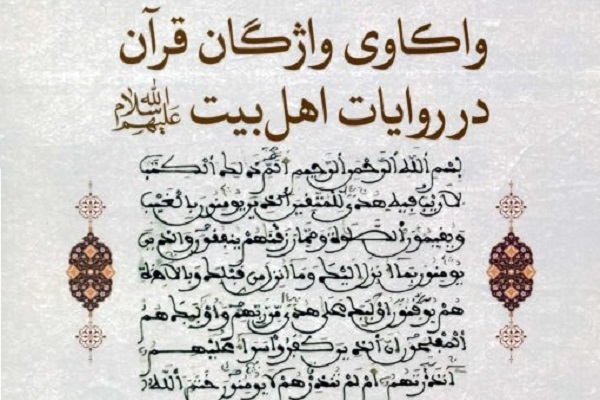 واکاوی واژگان قرآن
در روایات اهل بیت علیهم السلام
بسم الله الرحمن الرحيم الم ذلك الكتب
لا ريب فيه هدى للمتقين الذين يومنون بالغيب
ويقيمون الصلوة ومما رزقنهم ينفقون والذين
يومنون بما انزل اليك وما انزل من قبلك وبالاخرة
هم يوقنون اوليك على هدى من ربهم واوليك هم
المفلحون ان الذين كفروا سوا عليهم
انذرتهم ام لم تنذرهم لا يومنون ختم الله